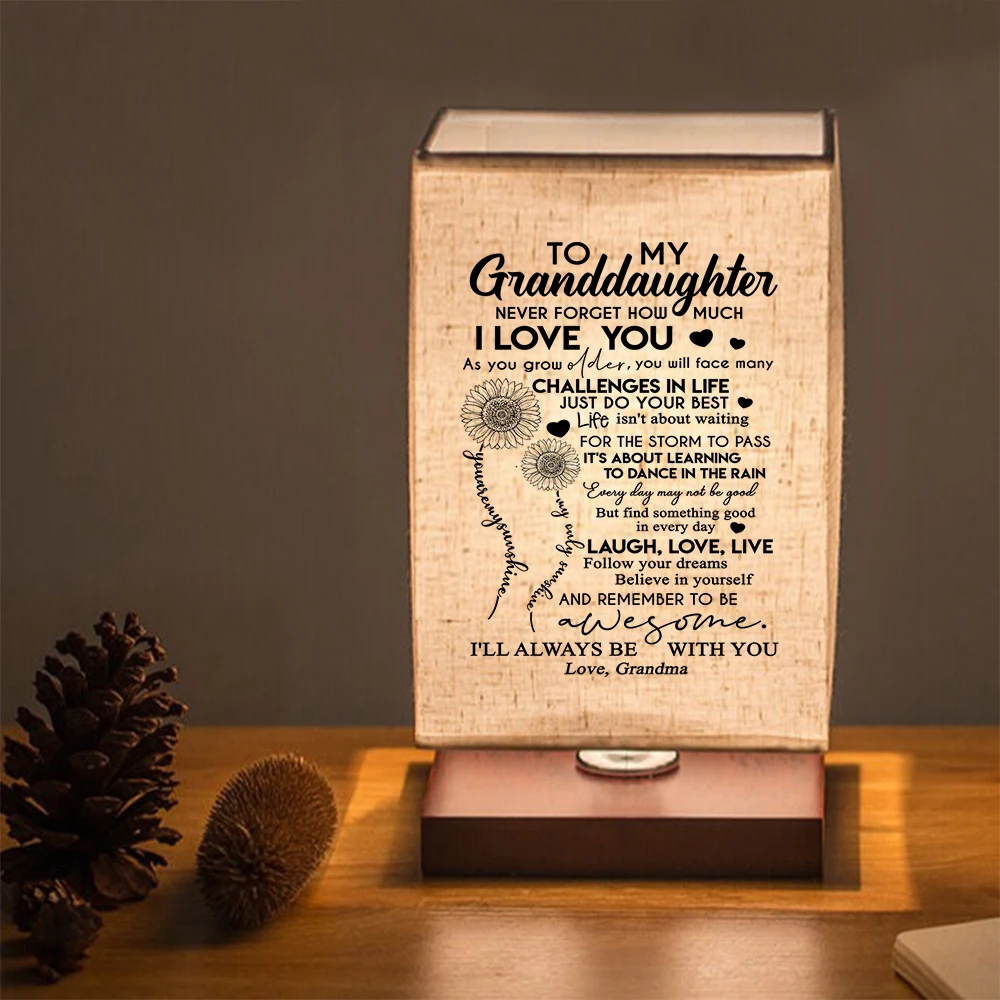 TO MY
Granddaughter
NEVER FORGET HOW MUCH
I LOVE YOU
As you grow older, you will face many
CHALLENGES IN LIFE
JUST DO YOUR BEST
Life isn't about waiting
FOR THE STORM TO PASS
IT'S ABOUT LEARNING
TO DANCE IN THE RAIN
Every day may not be good
But find something good
in every day
LAUGH, LOVE, LIVE
Follow your dreams
Believe in yourself
AND REMEMBER TO BE
awesome.
I'LL ALWAYS BE WITH YOU
Love, Grandma
youaremysunshine
my only sunshine